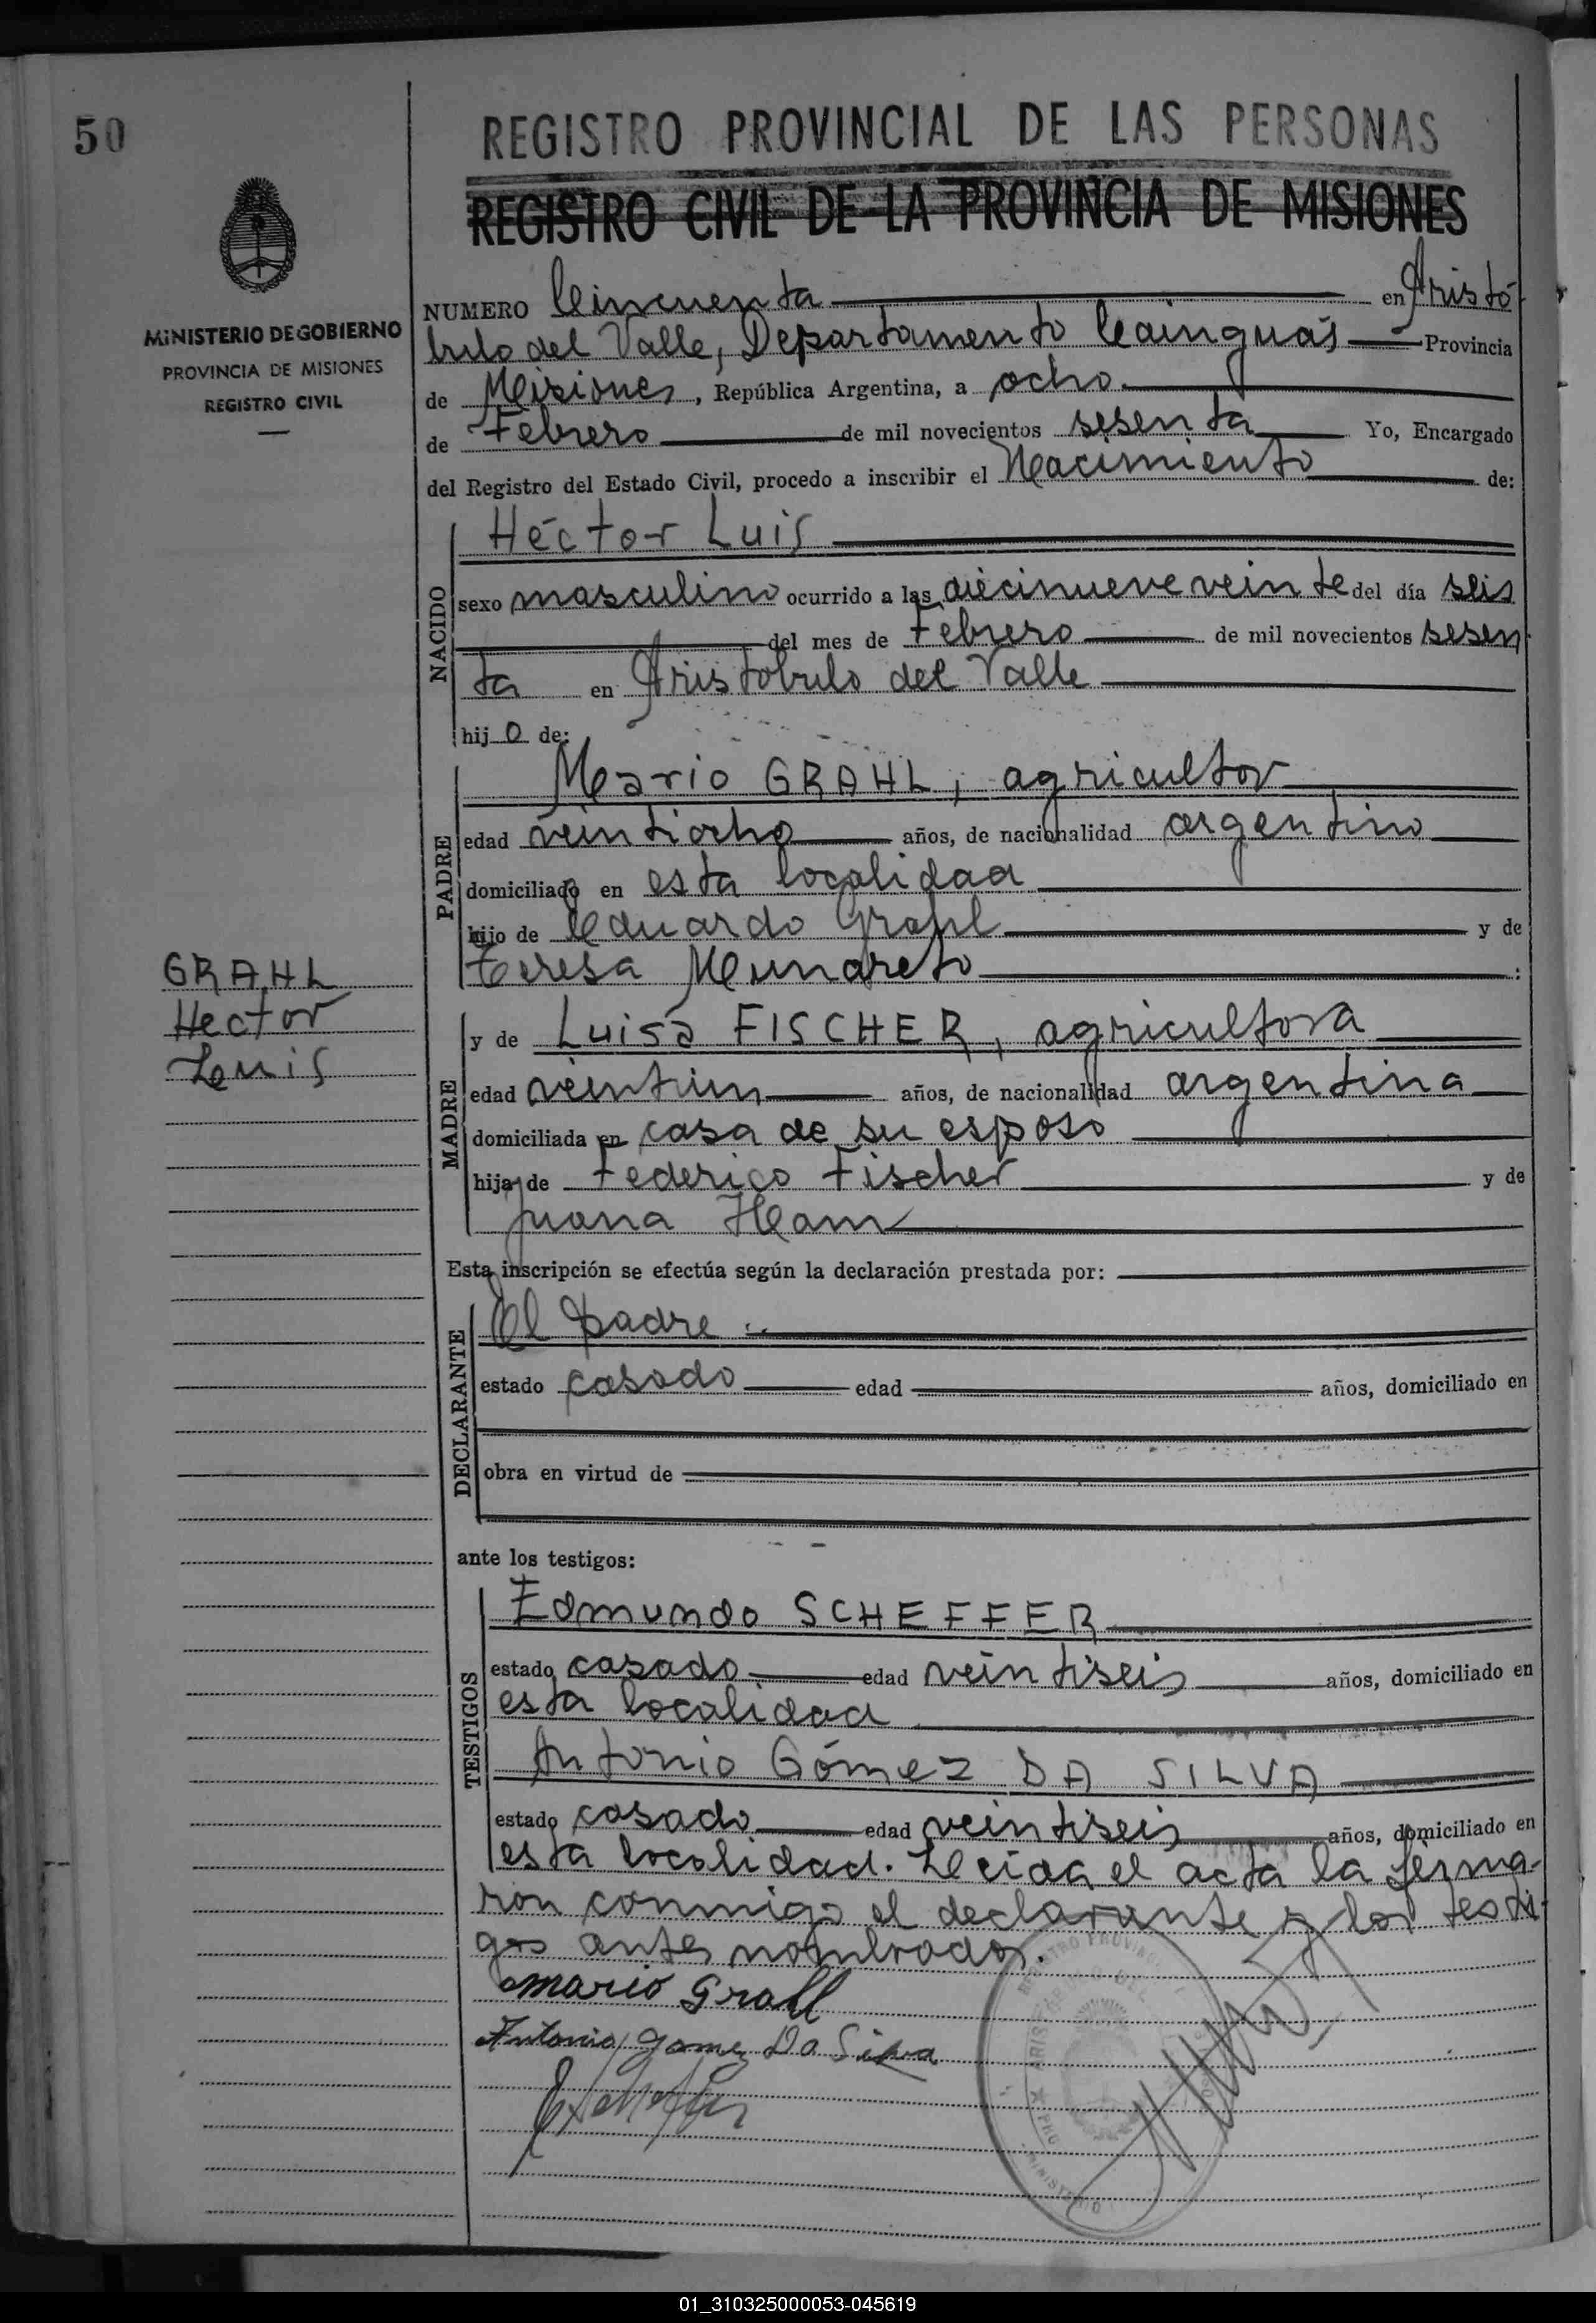 50
REGISTRO PROVINCIAL DE LAS PERSONAS
REGISTRO CIVIL DE LA PROVINCIA DE MISIONES
MINISTERIO DE GOBIERNO
PROVINCIA DE MISIONES
REGISTRO CIVIL
NUMERO Cincuenta en Aristó
bulo del Valle, Departamento Cainguás Provincia
de Misiones, República Argentina, a ocho
de Febrero de mil novecientos sesenta Yo, Encargado
del Registro del Estado Civil, procedo a inscribir el Nacimiento de:
NACIDO
Héctor Luis
sexo masculino ocurrido a las diecinueve veinte del día seis
del mes de Febrero de mil novecientos sesen
ta en Aristóbulo del Valle
hijo de:
PADRE
Mario GRAHL, agricultor
edad veintiocho años, de nacionalidad argentino
domiciliado en esta localidad
hijo de Eduardo Grahl y de
Teresa Munareto :
GRAHL
Hector
Luis
MADRE
y de Luisa FISCHER, agricultora
edad veintiun años, de nacionalidad argentina
domiciliada en casa de su esposo
hija de Federico Fischer y de
Juana Ham
Esta inscripción se efectúa según la declaración prestada por:
DECLARANTE
El padre
estado casado edad años, domiciliado en
obra en virtud de
ante los testigos:
TESTIGOS
Edmundo SCHEFFER
estado casado edad veintiseis años, domiciliado en
esta localidad
Antonio Gómez DA SILVA
estado casado edad veintiseis años, domiciliado en
esta localidad. Leida el acta la firma-
ron conmigo el declarante y los testi-
gos antes nombrados.
Mario Grahl
Antonio Gomez Da Silva
01_310325000053-045619